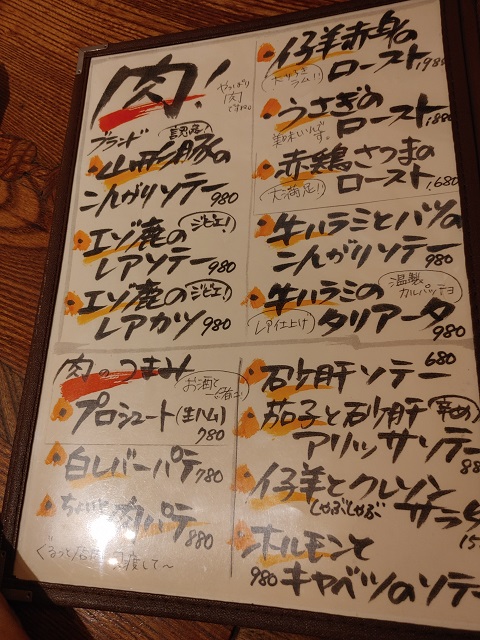 肉!
やっぱり
肉
ですね。
ブランド
山形豚の
こんがりソテー 980
エゾ鹿の ジビエ!
レアソテー 980
エゾ鹿の ジビエ!
レアカツ 980
肉のつまみ
お酒と
一緒に!
プロシュート(生ハム)
780
白レバーパテ 780
ちょいと肉パテ 880
ぐるっと
して〜
仔羊赤身の
ロースト 1980
ラム!!
うさぎの
ロースト 1,880
美味いんです。
赤鶏さつまの
ロースト 1,680
大満足!
牛ハラミとバツの
こんがりソテー 980
牛ハラミの 温製
カルパッチョ
レア仕上げ タリアータ
980
石ケ肝ソテー 680
茄子と石ケ肝 辛め
アリッサソテー
88
仔羊とクレソン
しゃぶしゃぶ サラダ
15
ホルモンと
980 キャベツのソテー